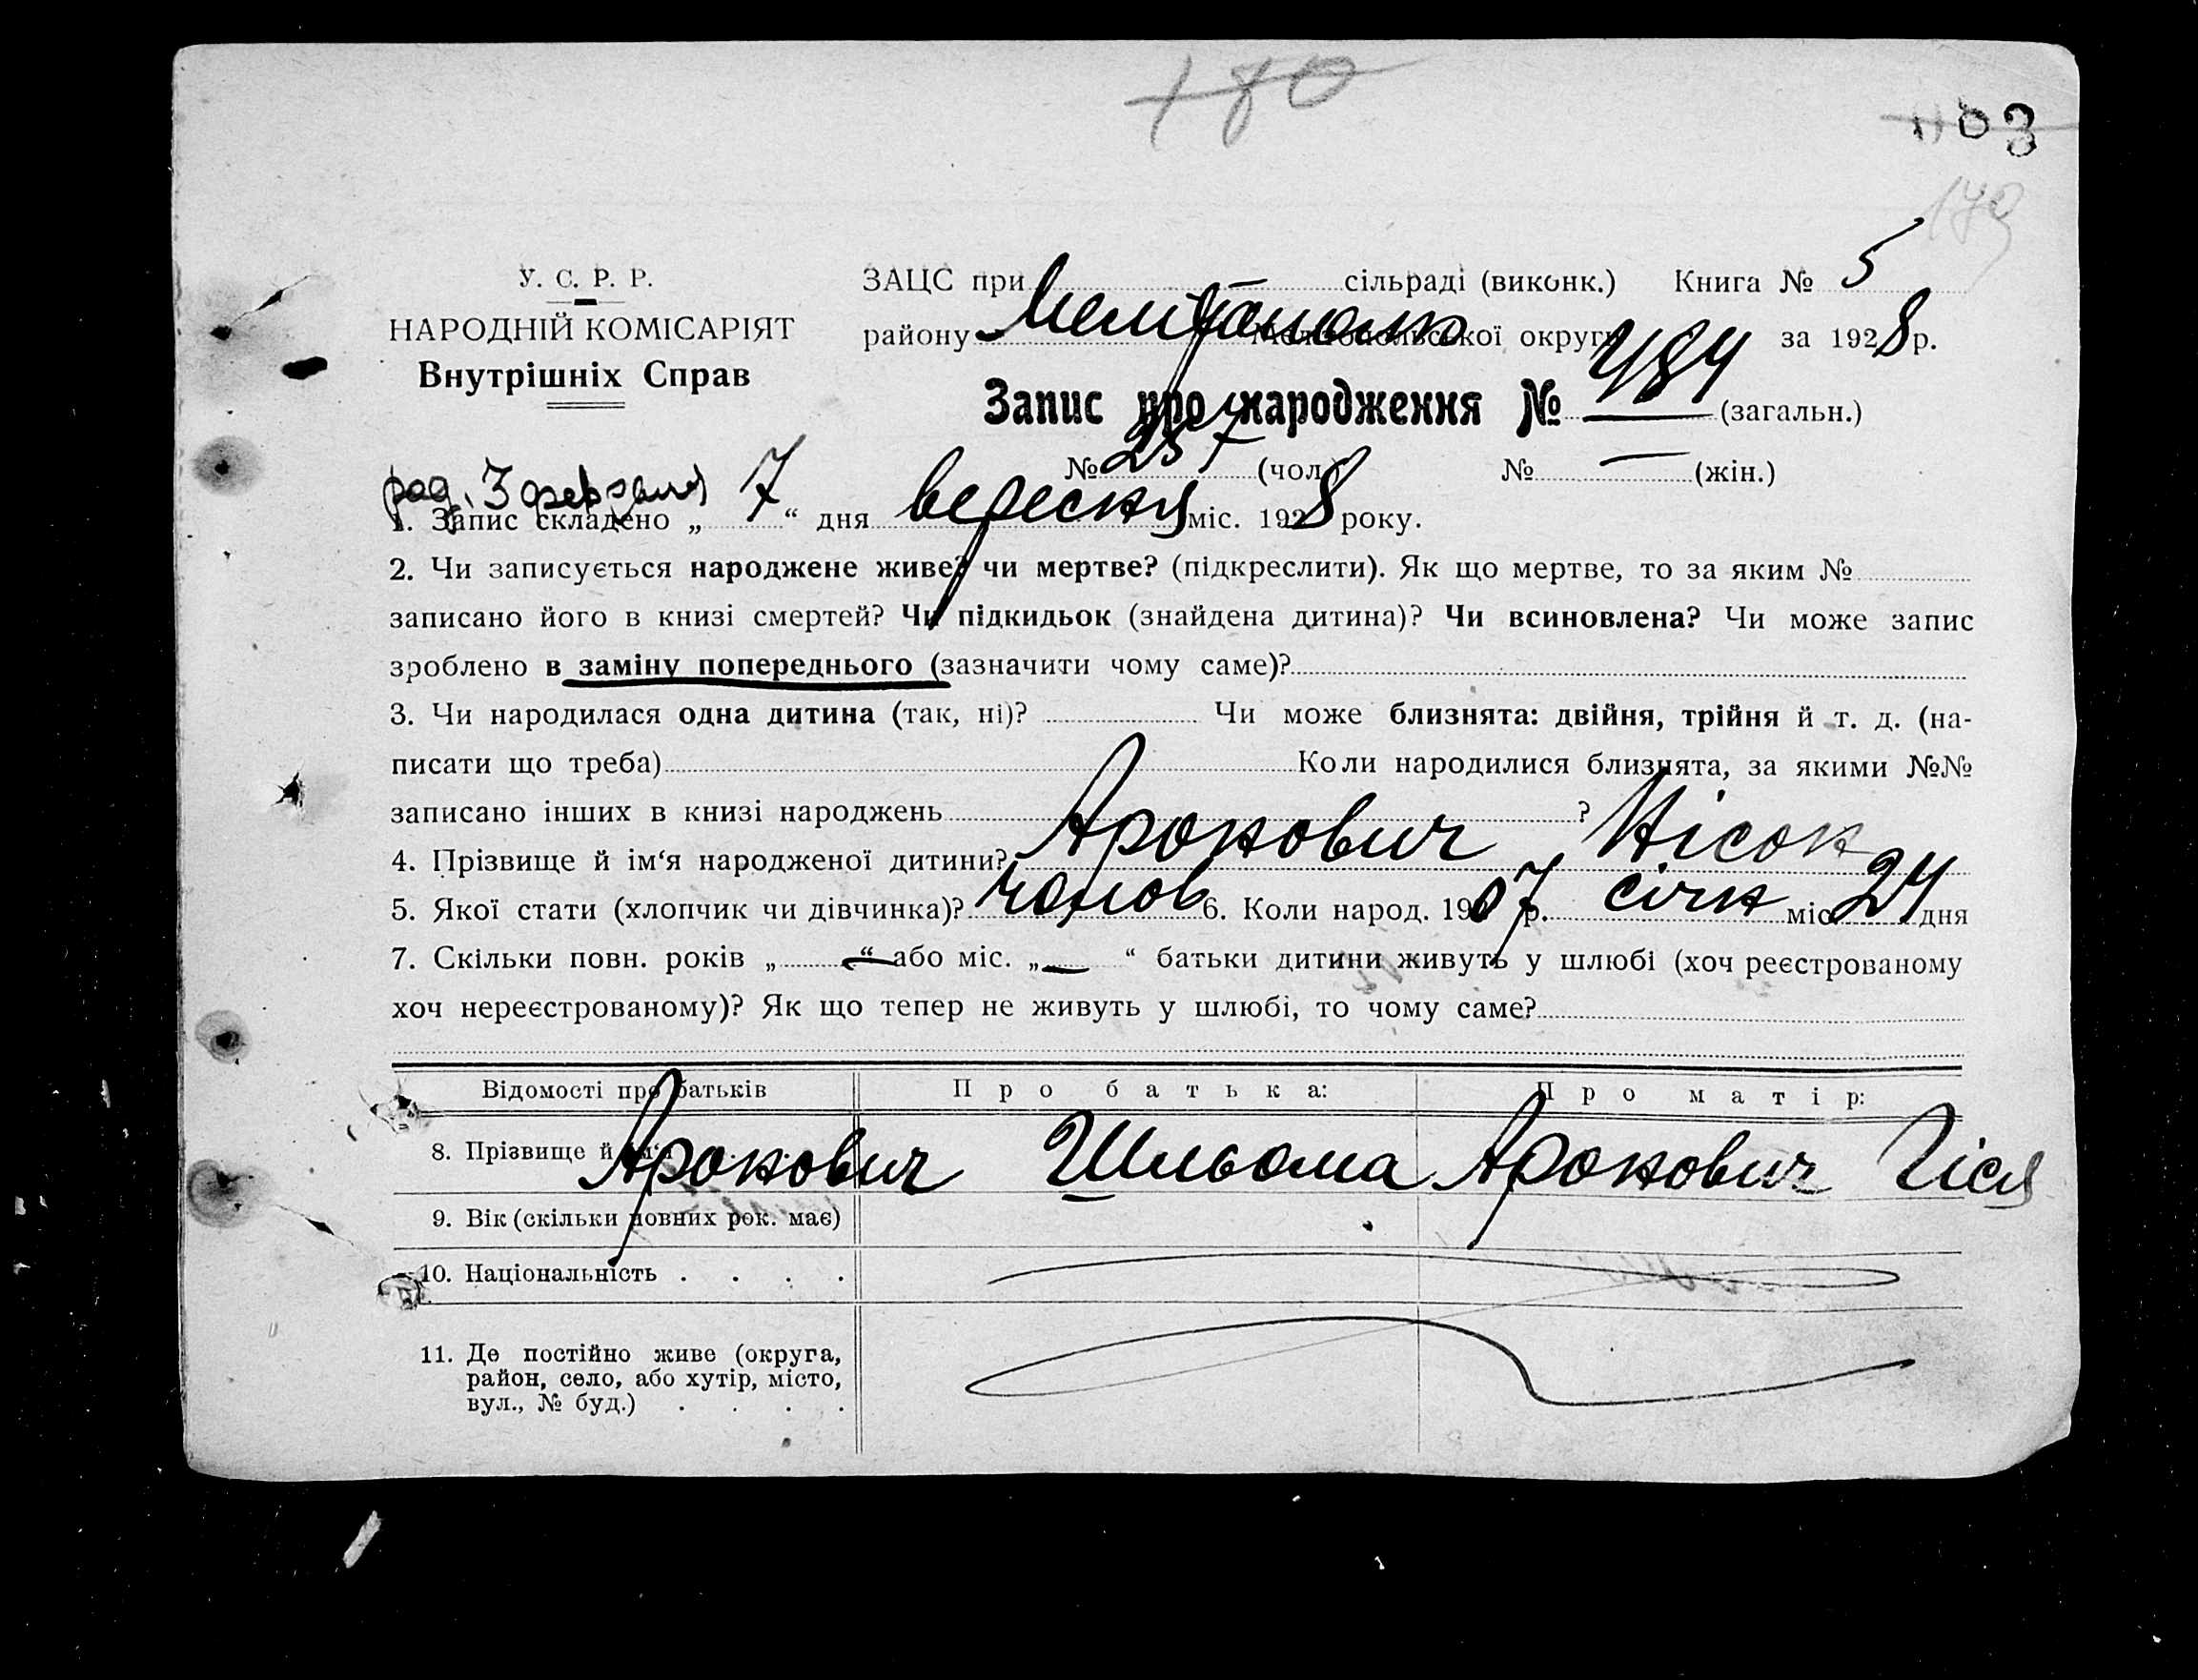 180
103
179
У. С. Р. Р.
НАРОДНІЙ КОМІСАРІЯТ
Внутрішніх Справ
ЗАЦС при сільраді (виконк.) Книга № 5
району Мелітопольськ Мелітопольської округи за 1928 р.
Запис про народження № 484 (загальн.)
№ 257 (чол.) № — (жін.)
род. 3 февраля
1. Запис складено „ 7 “ дня вересня міс. 1928 року.
2. Чи записується народжене живе? чи мертве? (підкреслити). Як що мертве, то за яким №
записано його в книзі смертей? Чи підкидьок (знайдена дитина)? Чи всиновлена? Чи може запис
зроблено в заміну попереднього (зазначити чому саме)?
3. Чи народилася одна дитина (так, ні)? Чи може близнята: двійня, трійня й т. д. (на-
писати що треба) Коли народилися близнята, за якими №№
записано інших в книзі народжень ?
4. Прізвище й ім‘я народженої дитини? Аронович Нісон
5. Якої стати (хлопчик чи дівчинка)? чолов 6. Коли народ. 1907 р. січн міс. 24 дня
7. Скільки повн. років „ — “ або міс. „ — “ батьки дитини живуть у шлюбі (хоч реєстрованому
хоч нереєстрованому)? Як що тепер не живуть у шлюбі, то чому саме?
Відомості про батьків Про батька: Про матір:
8. Прізвище й ім‘я Аронович Шльома Аронович Гіся
9. Вік (скільки повних рок. має)
10. Національність . . . .
11. Де постійно живе (округа,
район, село, або хутір, місто,
вул., № буд.) . . . .